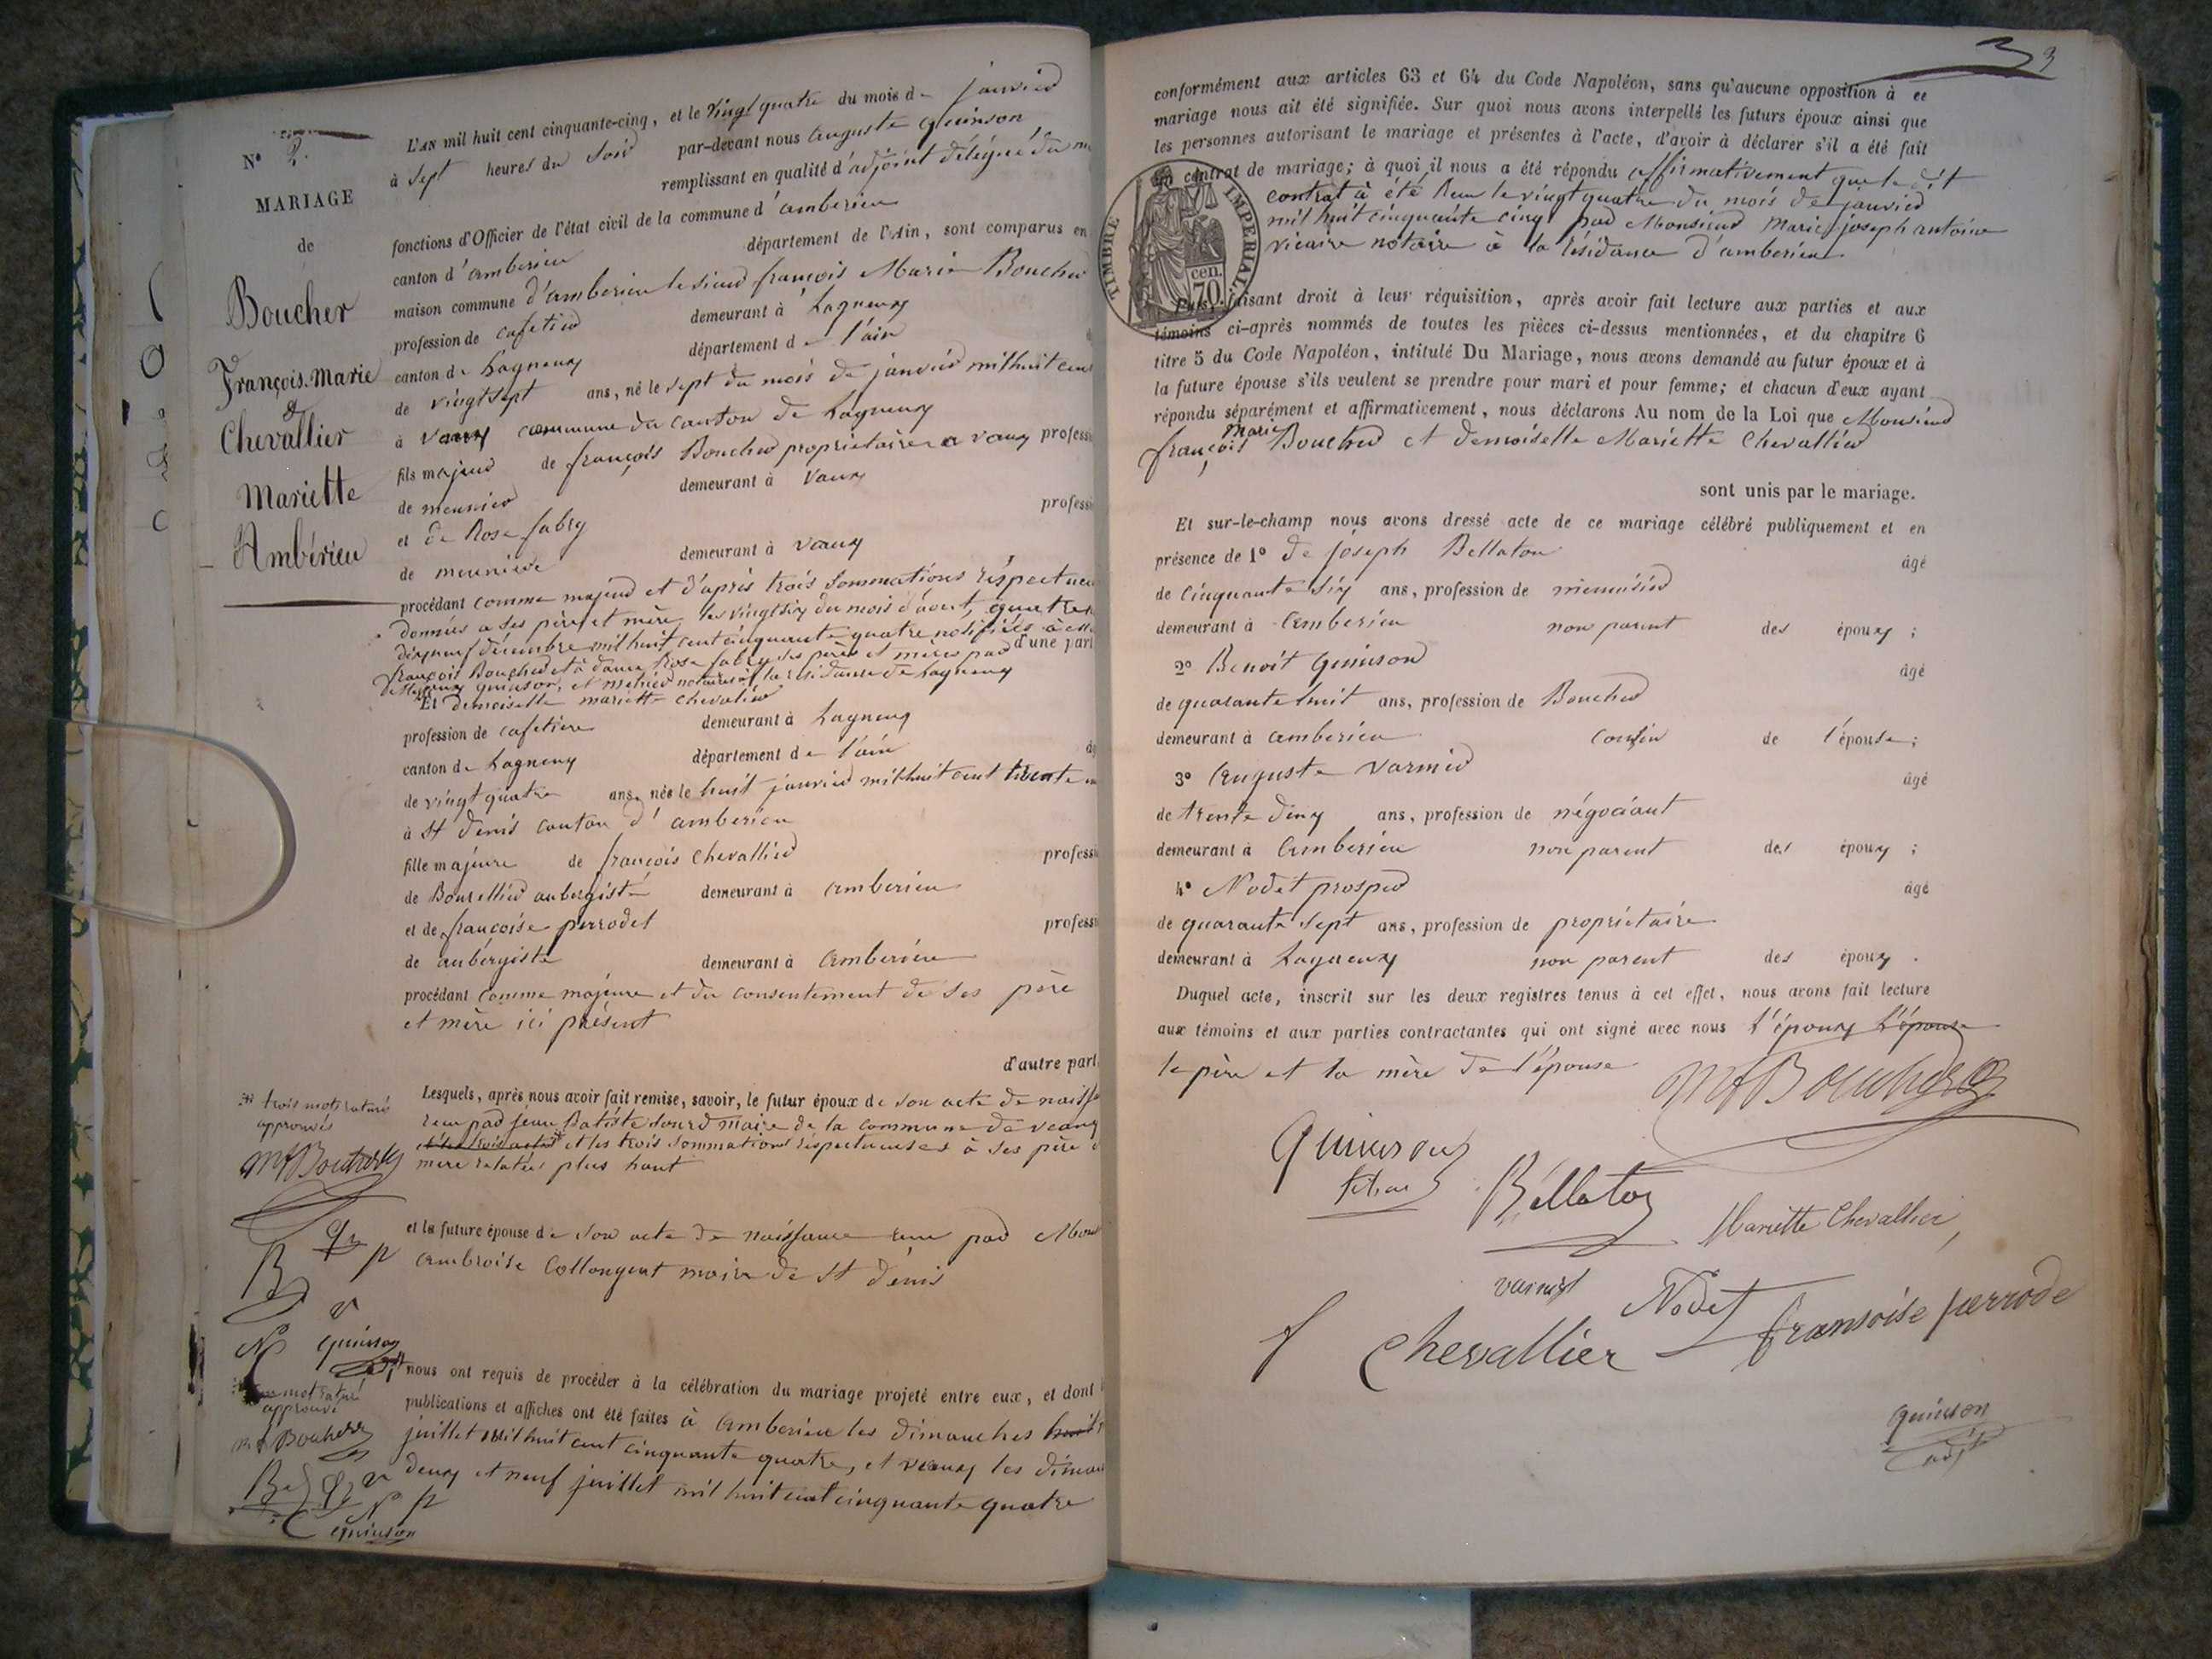 N° 2.
MARIAGE
de
Boucher
François-Marie
&
Chevallier
Mariette
Ambérieu
L'AN mil huit cent cinquante-cinq, et le vingt quatre du mois de janvier
à sept heures du soir par-devant nous auguste quinson
remplissant en qualité d'adjoint délégué du
fonctions d'Officier de l'état civil de la commune d'amberieu
canton d'amberieu département de l'Ain, sont comparus en
maison commune d'amberieu le sieur françois Marie Boucher
profession de cafetier demeurant à Lagneux
canton de Lagneux département de l'ain
de vingt sept ans, né le sept du mois de janvier mil huit cent
à vaux commune du canton de Lagneux
fils majeur de françois Boucher propriétaire a vaux professi
de meunier demeurant à vaux
et de Rose fabry professi
de meuniere demeurant à vaux
procédant comme majeur et d'après trois sommations respectueu
données a ses père et mère, les vingt six du mois d'aout, quatre
dixneuf décembre mil huit cent cinquante quatre notifiées à
françois Boucher et à dame Rose fabry ses père et mère par d'une part
quinson, et notaires à la résidance de Lagneux
Et demoiselle mariette chevalier
profession de cafetiere demeurant à Lagneux
canton de Lagneux département de l'ain
de vingt quatre ans, née le huit janvier mil huit cent trente
à St denis canton d'amberieu
fille majeure de françois chevallier professi
de Bourellier aubergiste demeurant à amberieu
et de françoise perrodet professi
de aubergiste demeurant à amberieu
procédant comme majeure et du consentement de ses père
et mère ici présent
d'autre part.
Lesquels, après nous avoir fait remise, savoir, le futur époux de son acte de naissa
recu par jean Batiste sourd maire de la commune de vaux
et les trois sommations respectueuses à ses père
mere relatées plus haut
trois mots raturés
approuvés
MfBoucher
et la future épouse de son acte de naissance recu par Mons
ambroise Collonget maire de St denis
quinson
nous ont requis de procéder à la célébration du mariage projeté entre eux, et dont
publications et affiches ont été faites à amberieu les dimanches huit
juillet mil huit cent cinquante quatre, et vaux les diman
deux et neuf juillet mil huit cent cinquante quatre
mot raturé
approuvé
Boucher
quinson
3
conformément aux articles 63 et 64 du Code Napoléon, sans qu'aucune opposition à ce
mariage nous ait été signifiée. Sur quoi nous avons interpellé les futurs époux ainsi que
les personnes autorisant le mariage et présentes à l'acte, d'avoir à déclarer s'il a été fait
un contrat de mariage; à quoi il nous a été répondu affirmativement que le dit
contrat à été recu le vingt quatre du mois de janvier
mil huit cinquante cinq par Monsieur Marie joseph antoine
vicaire notaire à la résidance d'amberieu
TIMBRE IMPERIAL
70 cen.
Puis, faisant droit à leur réquisition, après avoir fait lecture aux parties et aux
témoins ci-après nommés de toutes les pièces ci-dessus mentionnées, et du chapitre 6
titre 5 du Code Napoléon, intitulé Du Mariage, nous avons demandé au futur époux et à
la future épouse s'ils veulent se prendre pour mari et pour femme; et chacun d'eux ayant
répondu séparément et affirmativement, nous déclarons Au nom de la Loi que Monsieur
françois Marie Boucher et demoiselle Mariette Chevallier
sont unis par le mariage.
Et sur-le-champ nous avons dressé acte de ce mariage célébré publiquement et en
présence de 1° de joseph Bellaton âgé
de cinquante six ans, profession de menuisier
demeurant à amberieu non parent des époux ;
2° Benoit quinson âgé
de quarante huit ans, profession de Boucher
demeurant à amberieu cousin de l'épouse ;
3° auguste varnier âgé
de trente deux ans, profession de négociant
demeurant à amberieu non parent des époux ;
4° Nodet prosper âgé
de quarante sept ans, profession de propriétaire
demeurant à Lagneux non parent des époux .
Duquel acte, inscrit sur les deux registres tenus à cet effet, nous avons fait lecture
aux témoins et aux parties contractantes qui ont signé avec nous l'époux l'épouse
le père et la mère de l'épouse
MfBoucher
Quinson
Bellaton
Mariette Chevallier
Nodet
f Chevallier
fransoise perrode
quinson
adjt